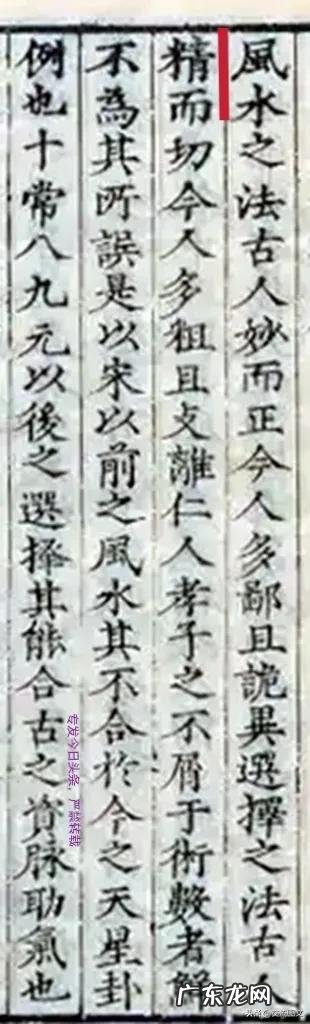 風水之法古人妙而正今人多鄙且詭異選擇之法古人
精而切今人多粗且支離仁人孝子之不屑于術數者解
不為其所誤是以宋以前之風水其不合於今之天星卦
例也十常八九元以後之選擇其能合古之資脉助氣也
专发今日头条，严禁转载
广东龙网